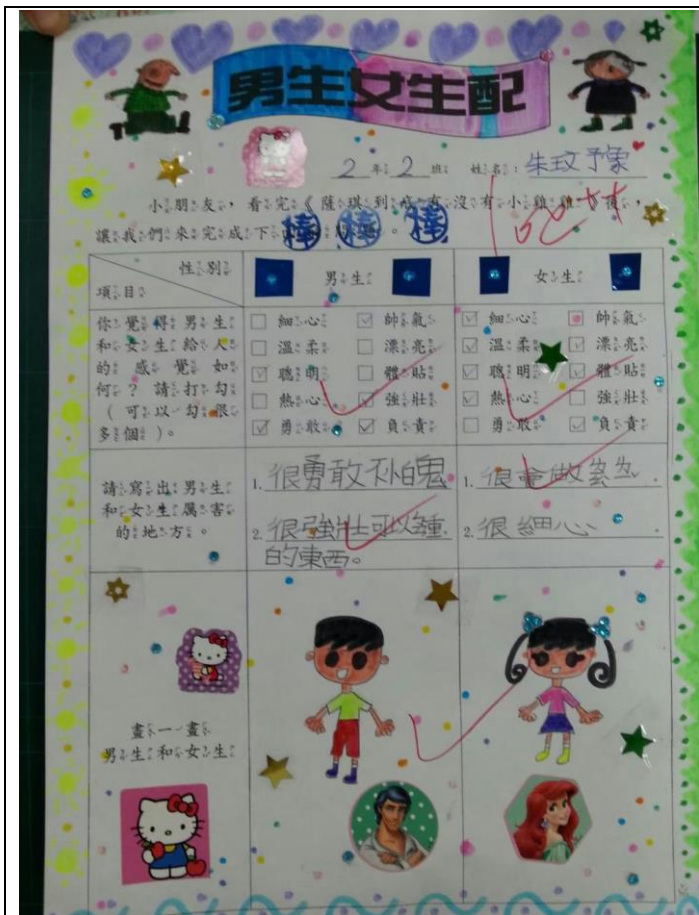 男生女生配
2 年 2 班 姓名：朱玟予
小朋友，看完《薩琪到底有沒有小雞雞》後，
讓我們來完成下
棒 棒 棒
性別
項目
男生
女生
你覺得男生
和女生給人
的感覺如
何？請打勾
（可以勾很
多個）。
細心 帥氣
溫柔 漂亮
聰明 體貼
熱心 強壯
勇敢 負責
細心 帥氣
溫柔 漂亮
聰明 體貼
熱心 強壯
勇敢 負責
請寫出男生
和女生厲害
的地方。
1. 很勇敢不怕鬼
2. 很強壯可以
的東西。
1. 很會做
2. 很細心
畫一畫
男生和女生